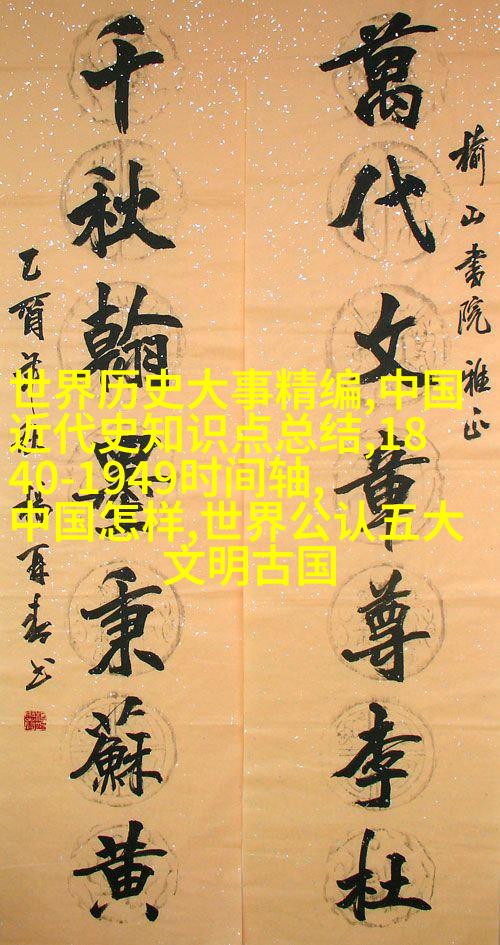 榆山書院雅正
萬代文章尊李杜
千秋翰墨秉蘇黄
乙酉楊再春书
世界历史大事精编,中国
近代史知识点总结,18
40-1949时间轴,
中国怎样,世界公认五大
文明古国